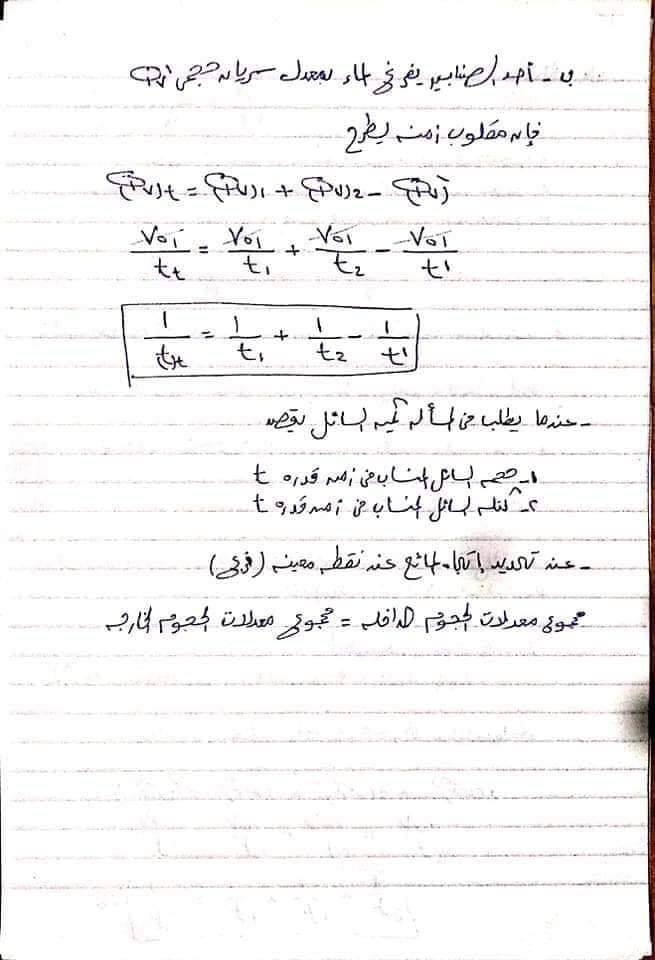 ب - أحد الصنابير يفرغ الماء بمعدل سريان حجمي Q̄v
فإن مقلوب زمنه يطرح
(Qv)t = (Qv)1 + (Qv)2 - Q̄v
Vol/tt = Vol/t1 + Vol/t2 - Vol/t'
1/(t)t = 1/t1 + 1/t2 - 1/t'
- عندما يطلب في المسألة كمية السائل يقصد
1- حجم السائل المنساب في زمن قدره t
2- كتلة السائل المنساب في زمن قدره t
- عند تحديد إتجاه المائع عند نقطه معينه (فرعي)
مجموع معدلات الحجوم الداخله = مجموع معدلات الحجوم الخارجه